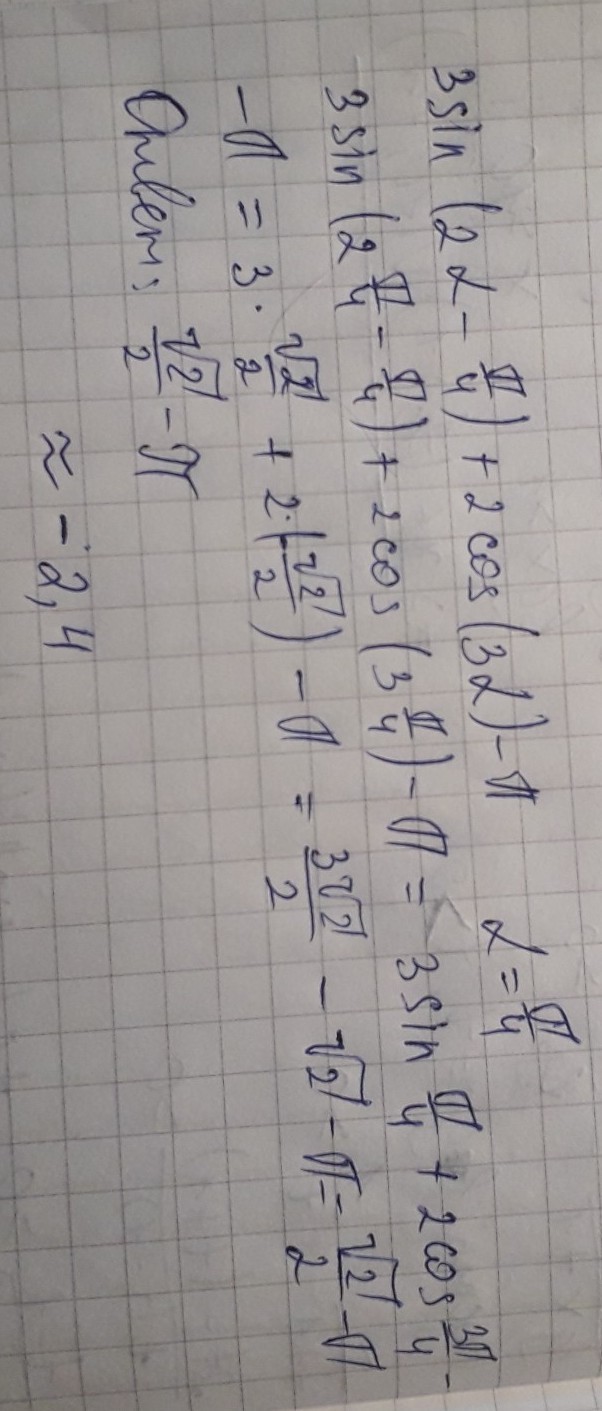 3 sin (2α - π/4) + 2 cos (3α) - π α = π/4
3 sin (2 π/4 - π/4) + 2 cos (3 π/4) - π = 3 sin π/4 + 2 cos 3π/4 -
- π = 3 · √2/2 + 2 · (-√2/2) - π = 3√2/2 - √2 - π = √2/2 - π
Ответ: √2/2 - π
≈ -2,4